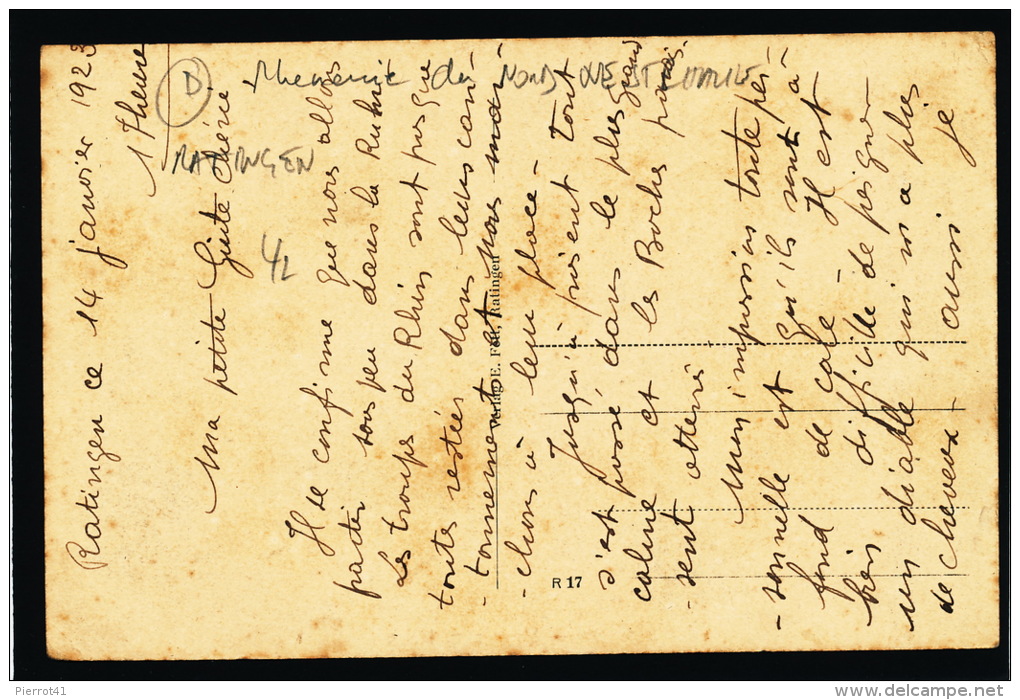 Ratingen ce 14 janvier 1923
17 heure
Ma petite Guite chérie
Il se confirme que nous allons
partir sous peu dans la Ruhr.
Les troupes du Rhin sont presque
toutes restées dans leurs can-
-tonnements et nous mar-
-chons à leur place -
Jusqu'à présent tout
s'est passé dans le plus grand
calme et les Boches
-sent atterrés
Mon impression toute per-
-sonnelle est qu'ils sont à
fond de cale - Il est
bien difficile de peigner
un diable qui n'a plus
de cheveux - aussi je
D Rhenanie du Nord WESTPHALIE
RATINGEN
42
Verlag E. Ratingen
R 17
Pierrot41
www.delcampe.net